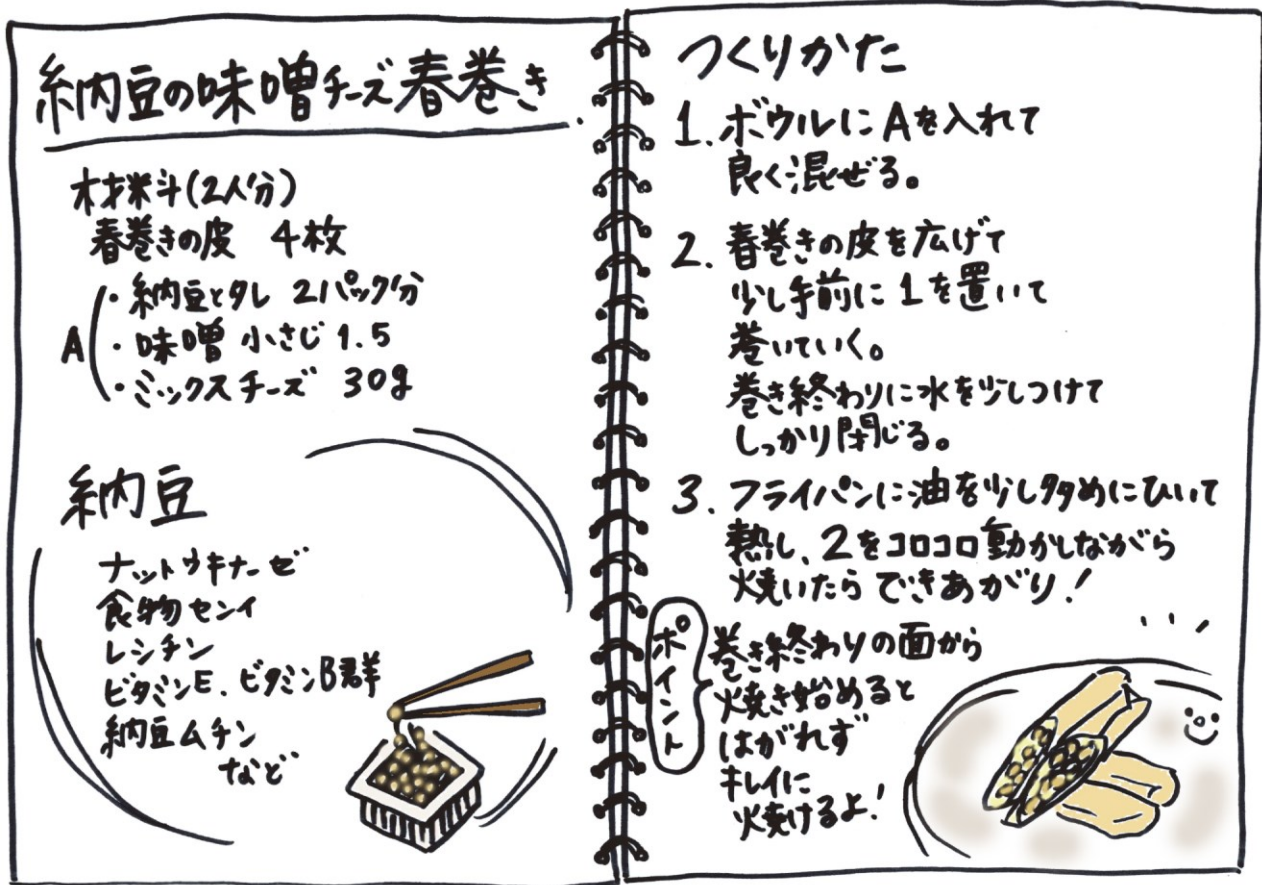 納豆の味噌チーズ春巻き
材料(2人分)
春巻きの皮 4枚
A
・納豆とタレ 2パック分
・味噌 小さじ 1.5
・ミックスチーズ 30g
納豆
ナットウキナーゼ
食物センイ
レシチン
ビタミンE、ビタミンB群
納豆ムチン
など
つくりかた
1. ボウルにAを入れて
良く混ぜる。
2. 春巻きの皮を広げて
少し手前に1を置いて
巻いていく。
巻き終わりに水を少しつけて
しっかり閉じる。
3. フライパンに油を少し多めにひいて
熱し、2をコロコロ動かしながら
焼いたら できあがり!
ポイント
巻き終わりの面から
焼き始めると
はがれず
キレイに
焼けるよ!